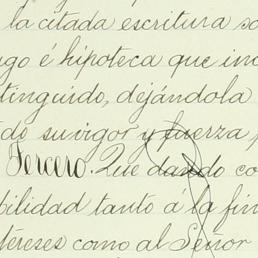 la citada escritura so
ago é hipoteca que in
tinguido, dejándola
do su vigor y fuerza p
Tercero. Que dando co
bilidad tanto a la fin
tereses como al Señor